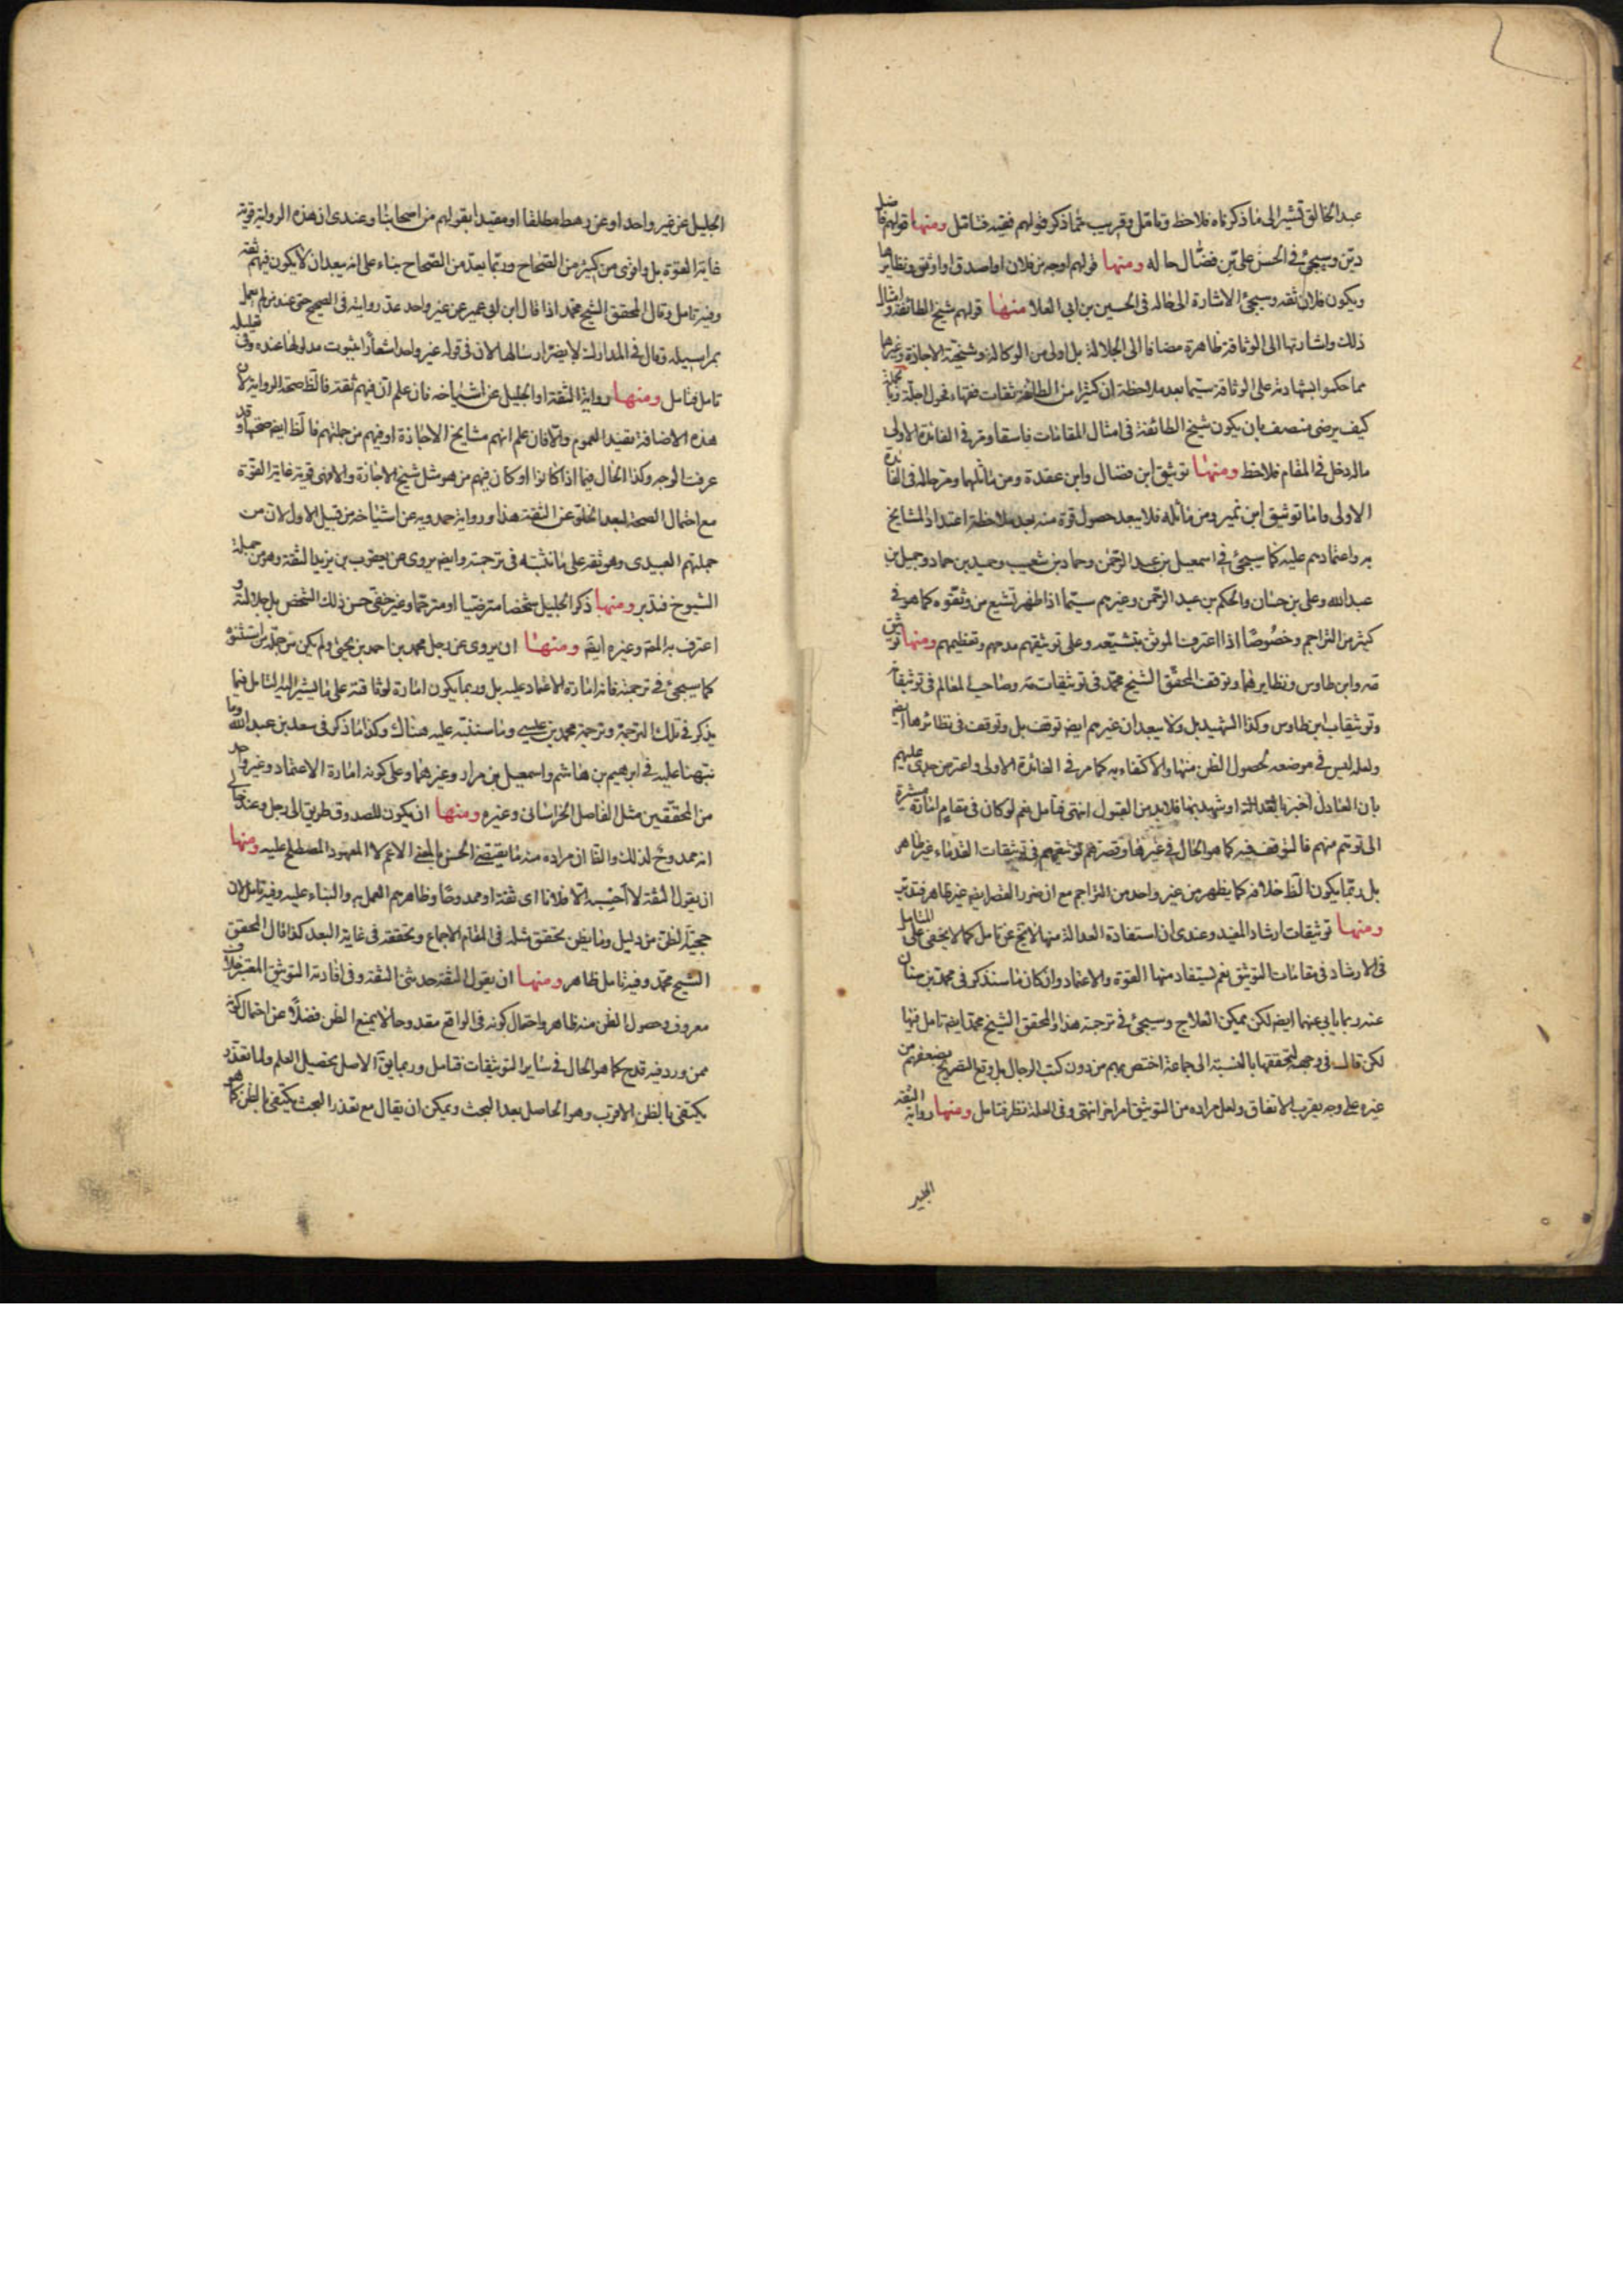 عبد الخالق تشير الى ما ذكرناه فلاحظ وتامل وقريب مما ذكر قولهم فقيه فتامل ومنها قولهم فاضل
دين وسيجئ في الحسن بن علي بن فضال حاله ومنها قولهم اوجه من فلان او اصدق او اوثق ونظايرها
ويكون فلان ثقه وسيجئ الاشارة الى حاله في الحسين بن ابي العلا منها قولهم شيخ الطائفة وامثال
ذلك واشارتها الى الوثاقة ظاهرة مضافا الى الجلالة بل اولى من الوكالة وشيخية الاجازة وغيرها
مما حكموا بشهادته على الوثاقة سيما بعد ملاحظة ان كثيرا من الطائفة ثقات فقهاء فحول اجلة وبالجملة
كيف يرضى منصف بان يكون شيخ الطائفة في امثال المقامات فاسقا ومر في الفائدة الاولى
ماله دخل في المقام فلاحظ ومنها توثيق ابن فضال وابن عقدة ومن ماثلهما ومر حاله في الفائدة
الاولى واما توثيق ابن نمير ومن ماثله فلا يبعد حصول قوة منه بعد ملاحظة اعتداد المشايخ
به واعتمادهم عليه كما سيجئ في اسمعيل بن عبد الرحمن وحماد بن شعيب وحميد بن حماد وجميل بن
عبد الله وعلي بن حسان والحكم بن عبد الرحمن وغيرهم سيما اذا ظهر تشيع من وثقوه كما هو في
كثير من التراجم وخصوصا اذا اعترف الموثق بتشيعه وعلى توثيقهم مدحهم وتعظيمهم ومنها توثيق
مه وابن طاوس ونظايرهما وتوقف المحقق الشيخ محمد في توثيقات مه وصاحب المعالم في توثيقاته
وتوثيقات ابن طاوس وكذا الشهيد بل ولا يبعد ان غيرهم ايضا توقف بل وتوقف في نظائرها ايضا
ولعله ليس في موضعه لحصول الظن منها والاكتفاء به كما مر في الفائدة الاولى واعترض جدى عليهم
بان العادل اخبر بالعدالة او شهد بها فلابد من القبول انتهى فتامل نعم لو كان في مقام امارة مشيرة
الى توهم منهم فالتوقف فيه كما هو الحال في غيرها وقصرهم توثيقهم في توثيقات القدماء غير ظاهر
بل ربما يكون الظ خلافه كما يظهر من غير واحد من التراجم مع ان ضرر القصر ايضا غير ظاهر فتدبر
ومنها توثيقات ارشاد المفيد وعندى ان استفادة العدالة منها لا تخ عن تامل كما لا يخفى على المتامل
في الارشاد في مقامات التوثيق نعم يستفاد منها القوة والاعتماد وان كان ما سنذكر في محمد بن سنان
عنه ربما يابى عنهما ايضا لكن يمكن العلاج وسيجئ في ترجمته هذا والمحقق الشيخ محمد ايضا تامل فيها
لكن قال في وجهه لتحققها بالنسبة الى جماعة اختص بهم من دون كتب الرجال بل وقع التصريح بضعفهم من
غيره على وجه يقرب الاتفاق ولعل مراده من التوثيق امر اخر انتهى وفي العلة نظر فتامل ومنها رواية الثقه
الجليل
الجليل عن غير واحد او عن رهط مطلقا او مقيدا بقولهم من اصحابنا وعندى ان هذه الرواية قوية
غاية القوة بل واقوى من كثير من الصحاح وربما يعد من الصحاح بناء على انه يبعد ان لا يكون فيهم ثقه
وفيه تامل وقال المحقق الشيخ محمد اذا قال ابن ابي عمير عن غير واحد عد روايته في الصحيح حتى عند من لم يعمل
بمراسيله وقال في المدارك لا يضر ارسالها لان في قوله غير واحد اشعارا بثبوت مدلولها عنده وفي تعليله
تامل فتامل ومنها رواية الثقة او الجليل عن اشياخه فان علم ان فيهم ثقة فالظ صحة الرواية لان
هذه الاضافة تفيد العموم والا فان علم انهم مشايخ الاجازة او فيهم من جملتهم فالظ ايضا صحتها وقد
عرفت الوجه وكذا الحال فيما اذا كانوا او كان فيهم من هو مثل شيخ الاجازة والا فهى قوية غاية القوة
مع احتمال الصحة لبعد الخلو عن الثقة هذا ورواية حمدويه عن اشياخه من قبيل الاول لان من
جملتهم العبيدى وهو ثقه على ما نثبته في ترجمته وايضا يروى عن يعقوب بن يزيد الثقة وهو من جملة
الشيوخ فتدبر ومنها ذكر الجليل شخصا مترضيا او مترحما وغير خفى حسن ذلك الشخص بل وجلالته
اعترف به المصـ وغيره ايضا ومنها ان يروى عن رجل محمد بن احمد بن يحيى ولم يكن من جملة من استثنوه
كما سيجئ في ترجمته فانه امارة الاعتماد عليه بل وربما يكون امارة لوثاقته على ما يشير اليه التامل فيما
يذكر في تلك الترجمة وترجمة محمد بن عيسى وما سننبه عليه هناك وكذا ما ذكر في سعد بن عبد الله وما
نبهنا عليه في ابرهيم بن هاشم واسمعيل بن مرار وغيرهما وعلى كونه امارة الاعتماد وغير واحد
من المحققين مثل الفاضل الخراسانى وغيره ومنها ان يكون للصدوق طريق الى رجل وعند خالى
انه ممدوح لذلك والظا ان مراده منه ما يقتضى الحسن بالمعنى الاعم لا المعهود المصطلح عليه ومنها
ان يقول الثقة لا احسبه الا فلانا اى ثقة او ممدوحا وظاهرهم العمل به والبناء عليه وفيه تامل لان
حجية الظن من دليل وما يظن تحقق مثله في المقام الاجماع وتحققه في غاية البعد كذا قال المحقق
الشيخ محمد وفيه تامل ظاهر ومنها ان يقول الثقة حدثنى الثقة وفي افادته التوثيق المعتبر خلاف
معروف وحصول الظن منه ظاهر واحتمال كونه في الواقع مقدوحا لا يمنع الظن فضلا عن احتمال كونه
ممن ورد فيه قدح كما هو الحال في ساير التوثيقات فتامل وربما يق الاصل تحصيل العلم ولما تعذر
يكتفى بالظن الاقرب وهو الحاصل بعد البحث ويمكن ان يقال مع تعذر البحث يكتفى بالظن كما هو